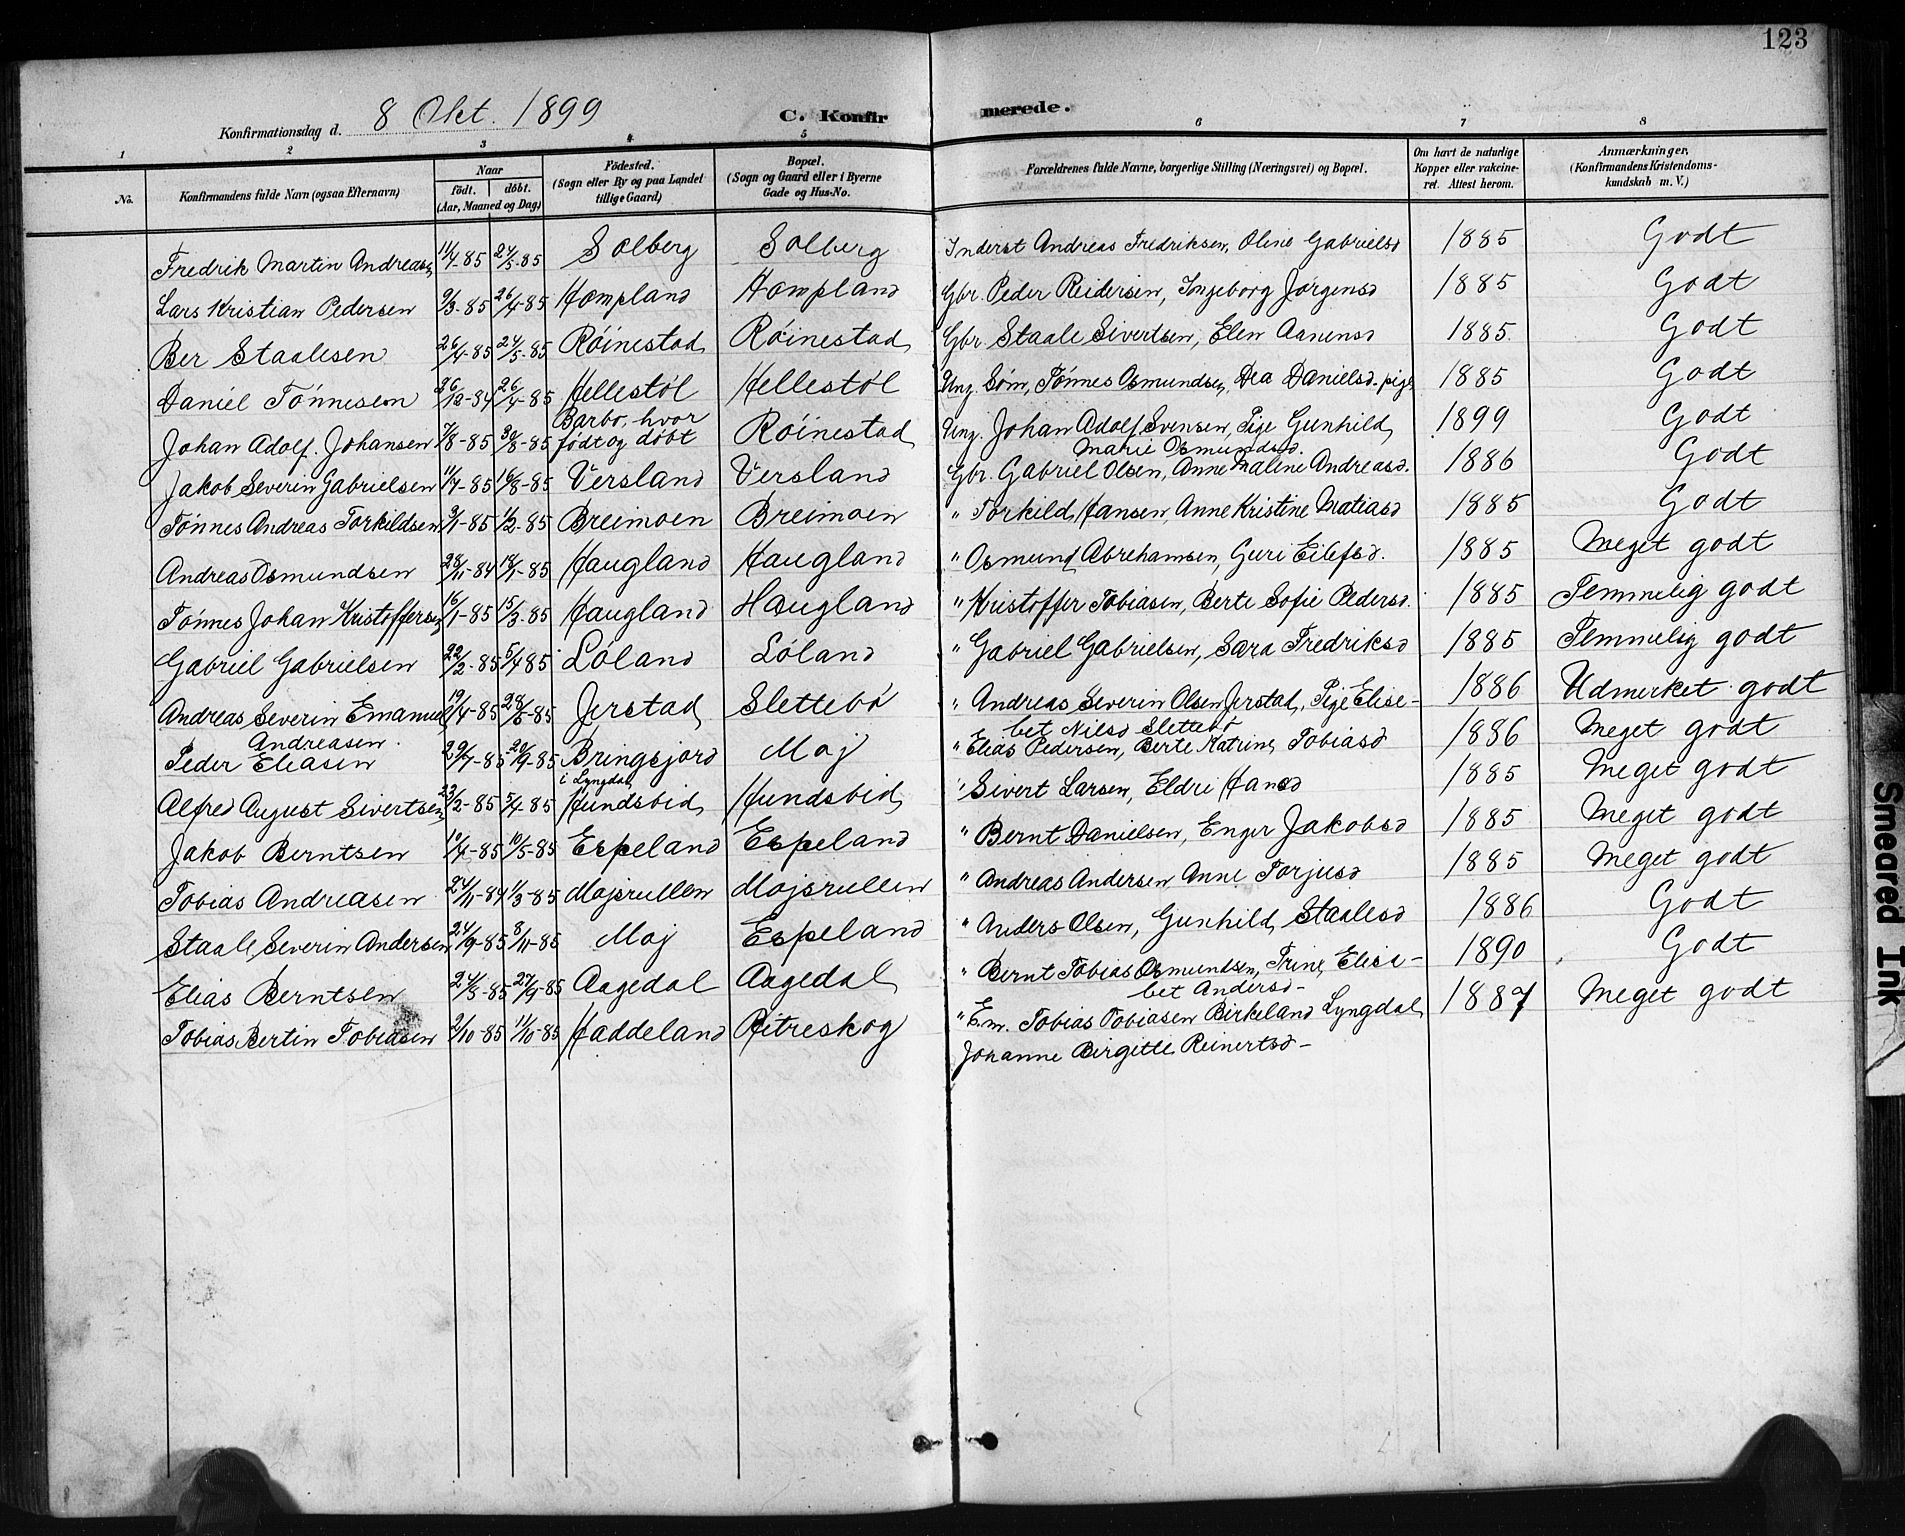 123
Konfirmationsdag d. 8 Okt. 1899
C. Konfirmerede.
1 2 3 4 5 6 7 8
No. Konfirmandens fulde Navn (ogsaa Efternavn) Naar födt. döbt. (Aar, Maaned og Dag) Födested. (Sogn eller By og paa Landet tillige Gaard) Bopæl. (Sogn og Gaard eller i Byerne Gade og Hus-No. Forældrenes fulde Navne, borgerlige Stilling (Næringsvei) og Bopæl. Om havt de naturlige Kopper eller vakcineret. Attest herom. Anmærkninger, (Konfirmandens Kristendomskundskab m. V.)
Fredrik Martin Andreasen 11/4-85 24/5-85 Solberg Solberg Inderst Andreas Fredriksen, Oline Gabrielsd 1885 Godt
Lars Kristian Pedersen 9/3-85 26/4-85 Hompland Hompland Gbr. Peder Reidersen, Ingeborg Jørgensd 1885 Godt
Ber Staalesen 26/4-85 24/5-85 Röinestad Röinestad Gbr. Staale Sivertsen, Elen Aanensd 1885. Godt
Daniel Tönnesen 26/12-84 26/4-85 Hellestöl Hellestöl Ung. Söm, Tönnes Osmundsen, Dea Danielsd. pige 1885 Godt
Johan Adolf. Johansen 7/8-85 30/8-85 Barbo, hvor födt og döbt Röinestad Ung. Johan Adolf Svensen, Pige Gunhild Marie Osmundsd. 1899 Godt
Jakob Severin Gabrielsen 11/7-85 16/8-85 Versland Versland Gbr. Gabriel Olsen, Anne Maline Andreasd. 1886 Godt
Tönnes Andreas Torkildsen 3/1-85 1/2-85 Breimoen Breimoen " Torkild Hansen, Anne Kristine Matiasd 1885 Godt
Andreas Osmundsen 28/11-84 18/1-85 Haugland Haugland " Osmund Abrehamsen, Guri Eilefsd. 1885 Meget godt
Tönnes Johan Kristoffersen 16/1-85 15/3-85 Haugland Haugland " Kristoffer Tobiasen, Berte Sofie Pedersd. 1885 Temmelig godt
Gabriel Gabrielsen 22/2-85 5/4 85 Löland Löland " Gabriel Gabrielsen, Sara Fredriksd 1885 Temmelig godt
Andreas Severin Emanuel Andreasen. 19/4-85 28/5-85 Jerstad Slettebö " Andreas Severin Olsen Jerstad, Pige Elisebet Nilsd Slettebö 1886 Udmerket godt
Peder Eliasen 29/7-85 20/9-85 Bringsjord i Lyngdal Moj " Elias Pedersen, Berte Katrine Tobiasd 1886 Meget godt
Alfred August Sivertsen 23/2-85 5/4-85 Hundsbid Hundsbid " Sivert Larsen, Eldri Hansd 1885 Meget godt
Jakob Berntsen 10/4-85 10/5-85 Espeland Espeland " Bernt Danielsen, Enger Jakobsd 1885 Meget godt
Tobias Andreasen 24/11-84 1/3-85 Mojsrullen Mojsrullen " Andreas Andersen Anne Torjusd 1885 Meget godt
Staale Severin Andersen 24/9-85 8/11-85 Moj Espeland " Anders Olsen, Gunhild Staalesd 1886 Godt
Elias Berntsen 24/5-85 27/9-85 Aagedal Aagedal " Bernt Tobias Osmundsen, Trine Elisabet Andersd- 1890 Godt
Tobias Bertin Tobiasen 2/10-85 11/10-85 Haddeland Ritreskog " E.m. Tobias Tobiasen Birkeland Lyngdal Johanne Birgitte Reinertsd- 1887 Meget godt
Smeared Ink